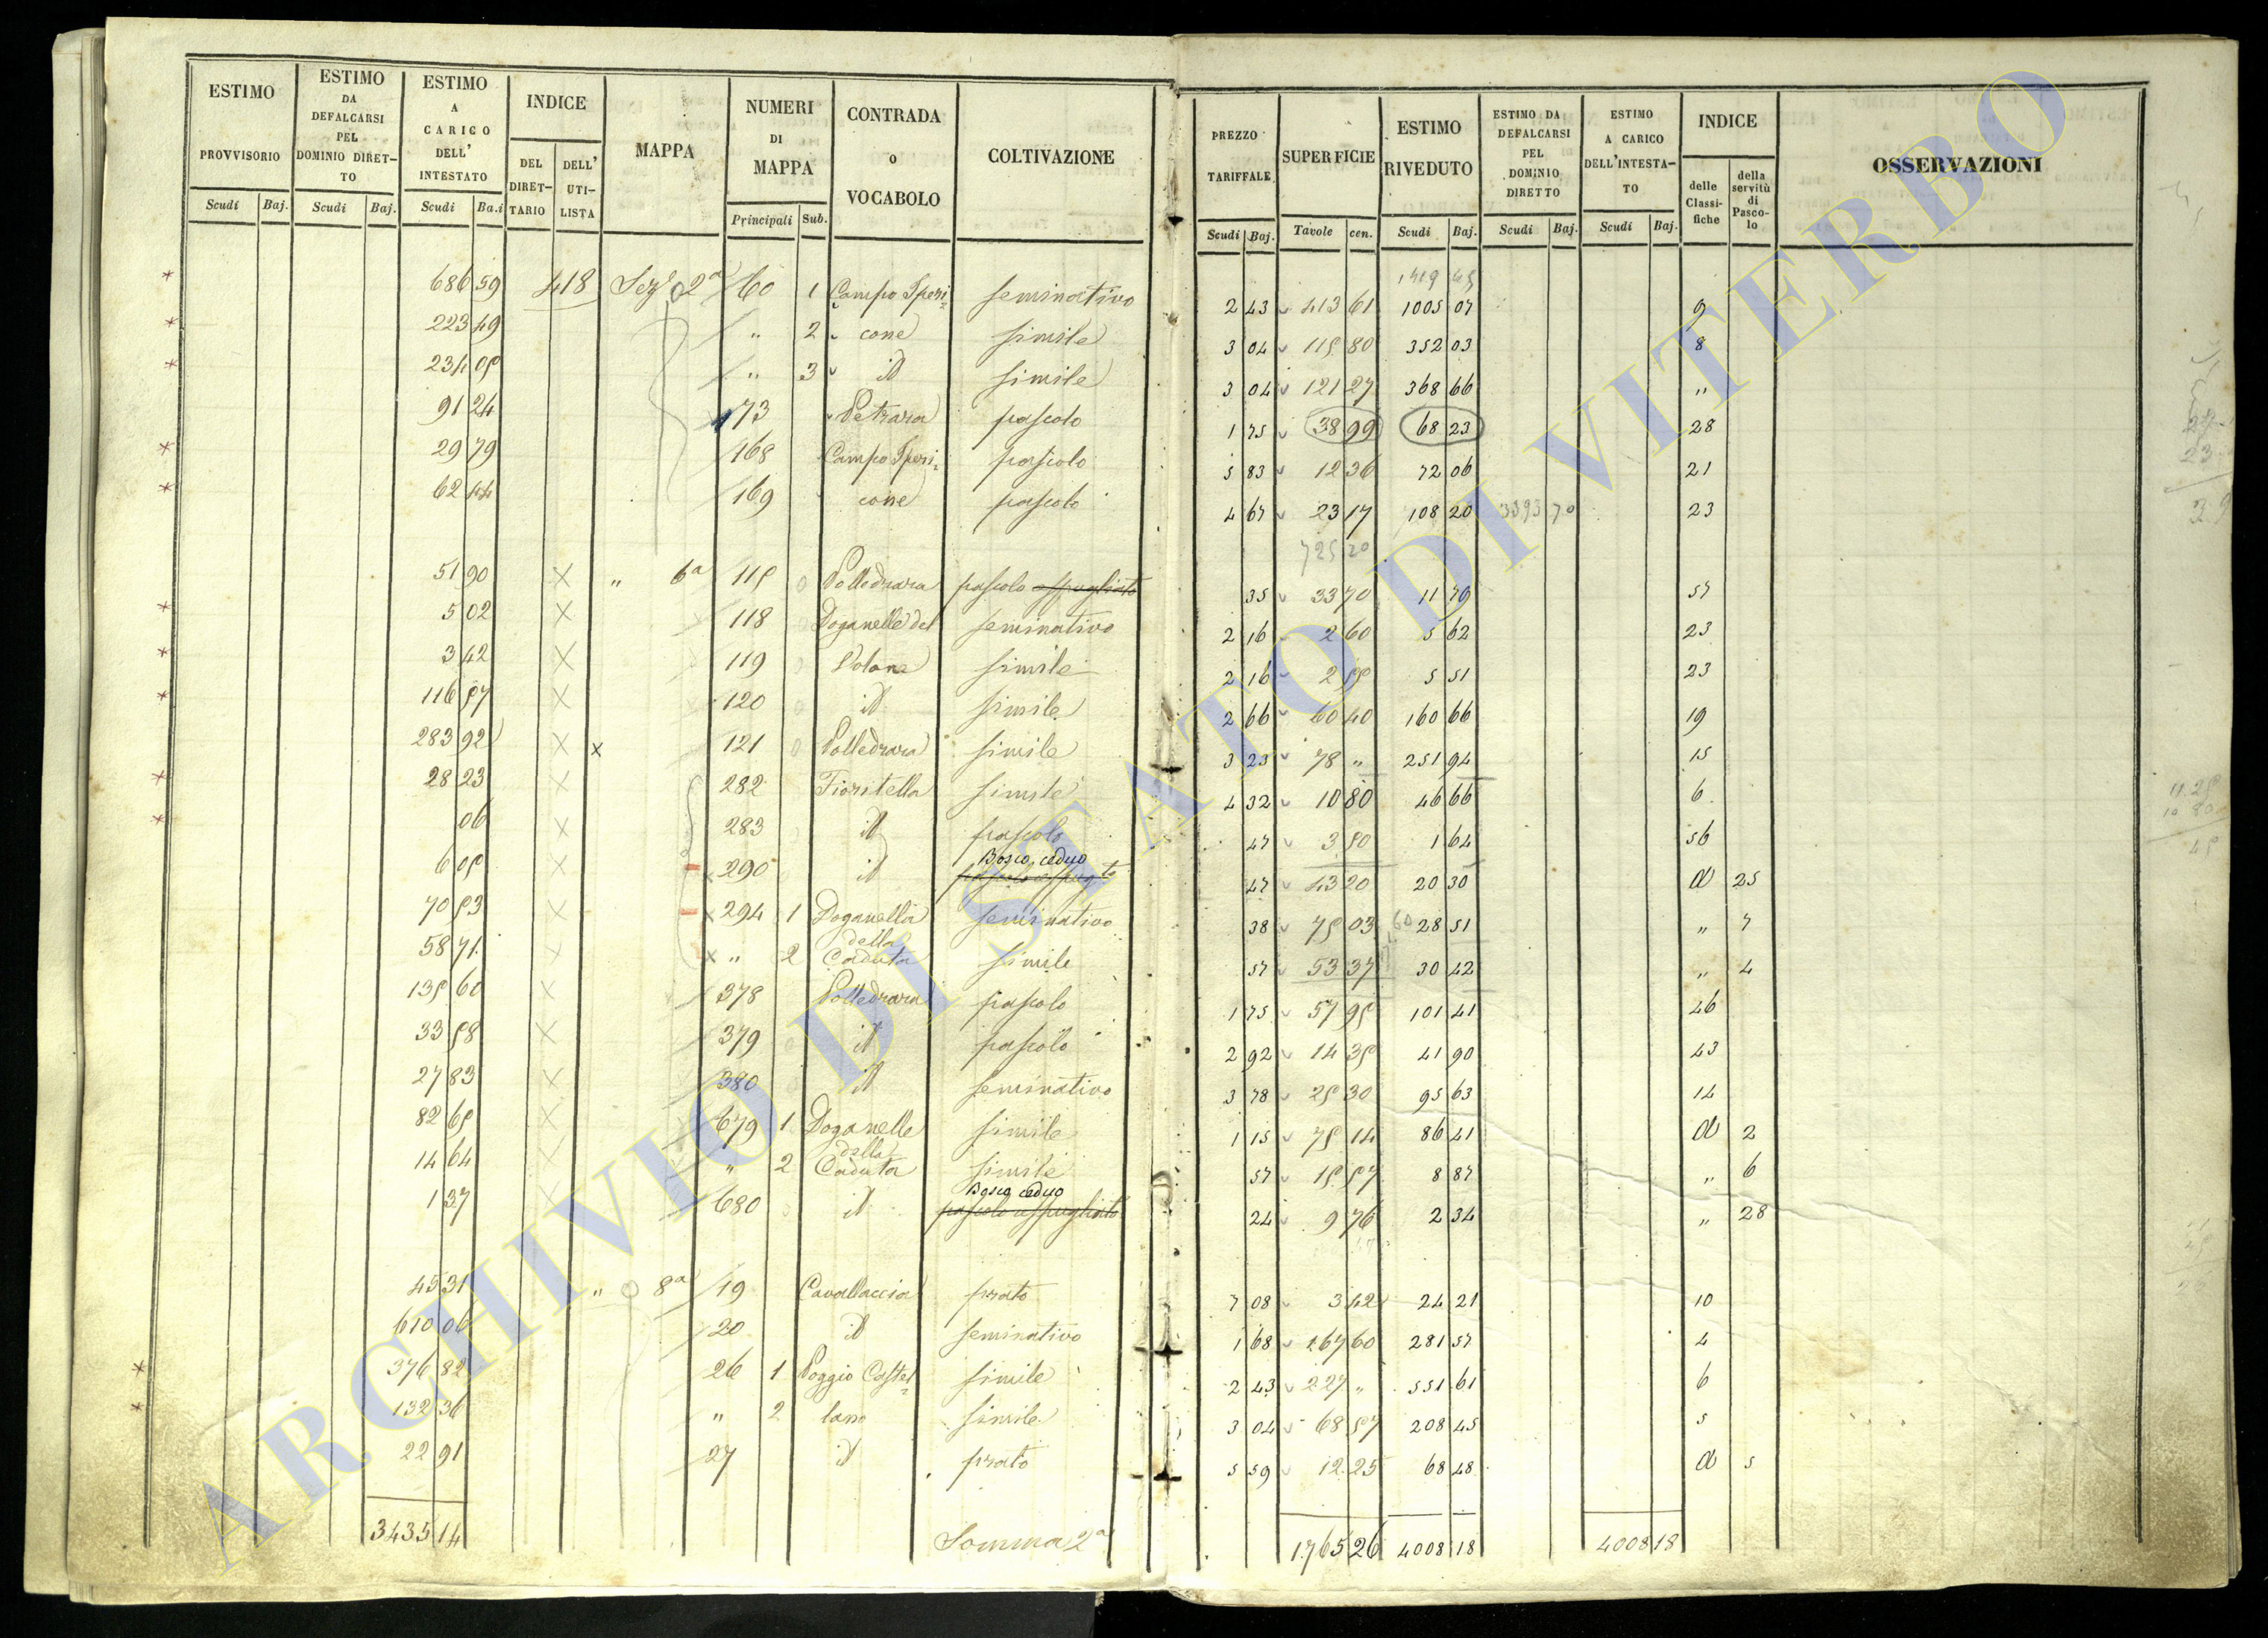 ESTIMO PROVVISORIO Scudi Baj.
ESTIMO DA DEFALCARSI PEL DOMINIO DIRET-TO Scudi Baj.
ESTIMO A CARICO DELL' INTESTATO Scudi Ba.i
INDICE DEL DIRET-TARIO DELL' UTI-LISTA
MAPPA
NUMERI DI MAPPA Principali Sub.
CONTRADA o VOCABOLO
COLTIVAZIONE
PREZZO TARIFFALE Scudi Baj.
SUPERFICIE Tavole cen.
ESTIMO RIVEDUTO Scudi Baj.
ESTIMO DA DEFALCARSI PEL DOMINIO DIRETTO Scudi Baj.
ESTIMO A CARICO DELL'INTESTA-TO Scudi Baj.
INDICE delle Classi-fiche della servitù di Pasco-lo
OSSERVAZIONI
1419 45
686 59 418 Sez 2a 60 1 Campo Speri= seminativo 2 43 413 61 1005 07 9
223 49 " 2 cone simile 3 04 115 80 352 03 8
234 05 " 3 id simile 3 04 121 27 368 66 "
91 24 73 Petrara pascolo 1 75 38 99 68 23 28
29 79 168 Campo Speri= pascolo 5 83 12 36 72 06 21
62 44 169 cone pascolo 4 67 23 17 108 20 3393 70 23
725 20
51 90 X " 6a 115 Polledrara pascolo cespugliato 35 33 70 11 79 57
5 02 X 118 Doganelle del seminativo 2 16 2 60 5 62 23
3 42 X 119 Polone simile 2 16 2 55 5 51 23
116 57 X 120 id simile 2 66 60 40 160 66 19
283 92 X x 121 Polledrara simile 3 23 78 " 251 94 15
28 23 X 282 Fioritella simile 4 32 10 80 46 66 6
06 X 283 id pascolo 47 3 50 1 64 56
Bosco ceduo
6 05 X x 290 id pascolo cespug.to 47 43 20 20 30 25
70 53 X x 294 1 Doganella seminativo 38 75 03 28 51 " 7
della
58 71 X x " 2 Caduta simile 57 53 37 30 42 " 4
135 60 X 378 Polledrara pascolo 1 75 57 95 101 41 46
33 58 X 379 id pascolo 2 92 14 35 41 90 43
27 83 X 380 id seminativo 3 78 25 30 95 63 14
82 65 X 679 1 Doganelle simile 1 15 75 14 86 41 2
della
14 64 X " 2 Caduta simile 57 15 57 8 87 " 6
Bosco ceduo
1 37 X 680 id pascolo cespugliato 24 9 76 2 34 " 28
45 31 " 8a 19 Cavallaccia prato 7 08 3 42 24 21 10
610 06 20 id seminativo 1 68 167 60 281 57 4
376 82 26 1 Poggio Castel= simile 2 43 227 " 551 61 6
132 36 " 2 lano simile 3 04 68 57 208 45 5
22 91 27 id prato 5 59 12 25 68 48 5
3435 14 Somma 2a 1765 26 4008 18 4008 18
ARCHIVIO DI STATO DI VITERBO